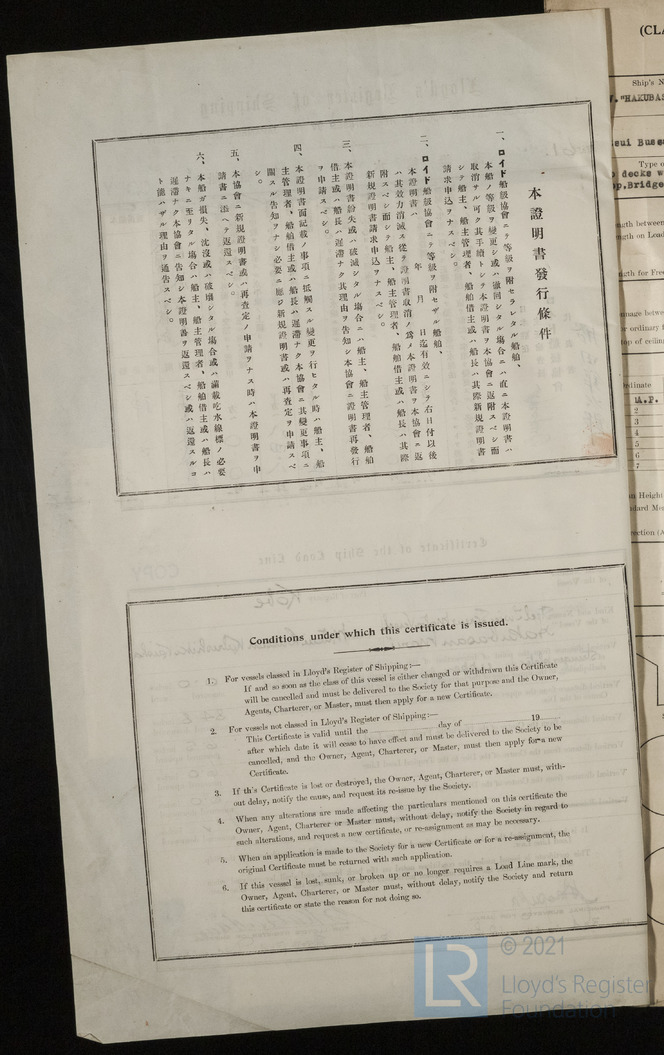 本證明書發行條件
一、ロイド船級協會ニテ等級ヲ附セラレタル船舶、
本船ノ等級ヲ變更シ或ハ撤回シタル場合ニハ直ニ本證明書ハ
取消サル可ク其手續トシテ本證明書ヲ本協會ニ返附スベシ而
シテ船主、船主管理者、船舶借主或ハ船長ハ其際新規證明書
請求申込ヲナスベシ。
二、ロイド船級協會ニテ等級ヲ附セザル船舶、
本證明書ハ 年 月 日迄有效ニシテ右日付以後
ハ其效力消滅ス從テ證明書取消ノ爲メ本證明書ヲ本協會ニ返
附スベシ而シテ船主、船主管理者、船舶借主或ハ船長ハ其際
新規證明書請求申込ヲナスベシ。
三、本證明書紛失或ハ破滅シタル場合ニハ船主、船主管理者、船舶
借主或ハ船長ハ遲滯ナク其理由ヲ告知シ本協會ニ證明書再發行
ヲ申請スベシ。
四、本證明書面記載ノ事項ニ抵觸スル變更ヲ行ヒタル時ハ船主、船
主管理者、船舶借主或ハ船長ハ遲滯ナク本協會ニ其變更事項ニ
關スル告知ヲナシ必要ニ應ジ新規證明書或ハ再査定ヲ申請スベ
シ。
五、本協會ニ新規證明書或ハ再査定ノ申請ヲナス時ハ本證明書ヲ申
請書ニ添ヘテ返還スベシ。
六、本船ガ損失、沈沒或ハ破壞シタル場合或ハ滿載吃水線標ノ必要
ナキニ至リタル場合ハ船主、船主管理者、船舶借主或ハ船長ハ
遲滯ナク本協會ニ告知シ本證明書ヲ返還スベシ或ハ返還スルコ
ト能ハザル理由ヲ通告スベシ。
Conditions under which this certificate is issued.
1. For vessels classed in Lloyd's Register of Shipping:—
If and so soon as the class of this vessel is either changed or withdrawn this Certificate
will be cancelled and must be delivered to the Society for that purpose and the Owner,
Agents, Charterer, or Master, must then apply for a new Certificate.
2. For vessels not classed in Lloyd's Register of Shipping:—
This Certificate is valid until the day of 19
after which date it will cease to have effect and must be delivered to the Society to be
cancelled, and the Owner, Agent, Charterer, or Master, must then apply for a new
Certificate.
3. If th's Certificate is lost or destroyed, the Owner, Agent, Charterer, or Master must, with-
out delay, notify the cause, and request its re-issue by the Society.
4. When any alterations are made affecting the particulars mentioned on this certificate the
Owner, Agent, Charterer or Master must, without delay, notify the Society in regard to
such alterations, and request a new certificate, or re-assignment as may be necessary.
5. When an application is made to the Society for a new Certificate or for a re-assignment, the
original Certificate must be returned with such application.
6. If this vessel is lost, sunk, or broken up or no longer requires a Load Line mark, the
Owner, Agent, Charterer, or Master must, without delay, notify the Society and return
this certificate or state the reason for not doing so.
(CLA
Ship's N
"HAKUBAS
sui Busse
Type o
decks w
op,Bridge
ngth between
ngth on Load
ngth for Free
nage betwe
r ordinary f
top of ceiling
rdinate
A.P.
2
3
4
5
6
7
n Height
dard Me
rection (A
LR
© 2021
Lloyd's Register
Foundation